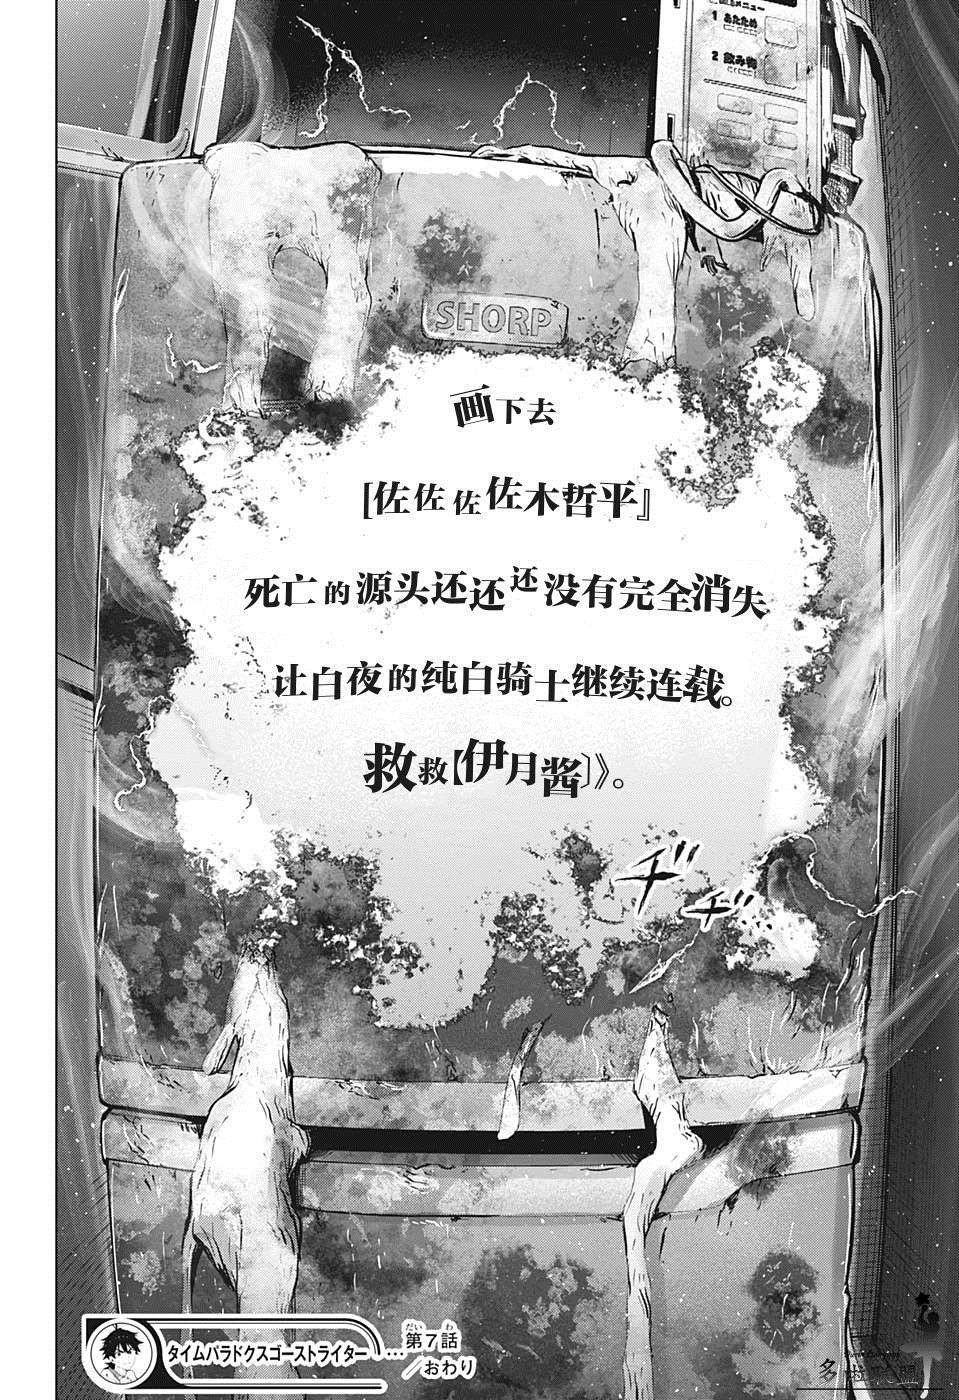 メニュー
1 あたため
2 飲み物
SHORP
画下去
[佐佐佐佐木哲平』
死亡的源头还还还没有完全消失
让白夜的纯白骑士继续连载。
救救【伊月酱〕》。
ヂ"
ヂヂ…
タイムパラドクスゴーストライター……第7話
だいわ
／おわり